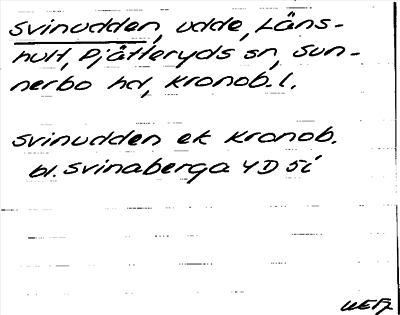 Svinudden, udde, Låns-
hult, Pjätteryds sn, Sun-
nerbo hd, Kronob. l.
Svinudden ek Kronob.
bl. Svinaberga 4D 5i